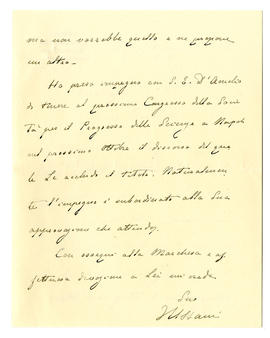 ma non vorrebbe questo e ne propone
un altro.
Ho preso impegno con S. E. D'Amelio
di tenere al prossimo Congresso della Socie
tà per il Progresso delle Scienze a Napoli
nel prossimo Ottobre il discorso del qua
le Le accludo il titolo. Naturalmen
te l'impegno è subordinato alla Sua
approvazione che attendo.
Con ossequi alla Marchesa e af
fettuosa devozione a Lei mi creda
Suo